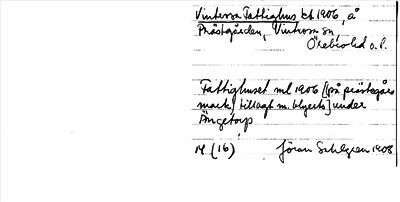 Vintrosa Fattighus bt 1906, å
Prästgården, Vintrosa sn,
Örebro hd o. l.
Fattighuset ml 1906 [på prästgårds
mark, tillagt m. blyerts] under
Ängetorp
14 (16) Jöran Sahlgren 1908